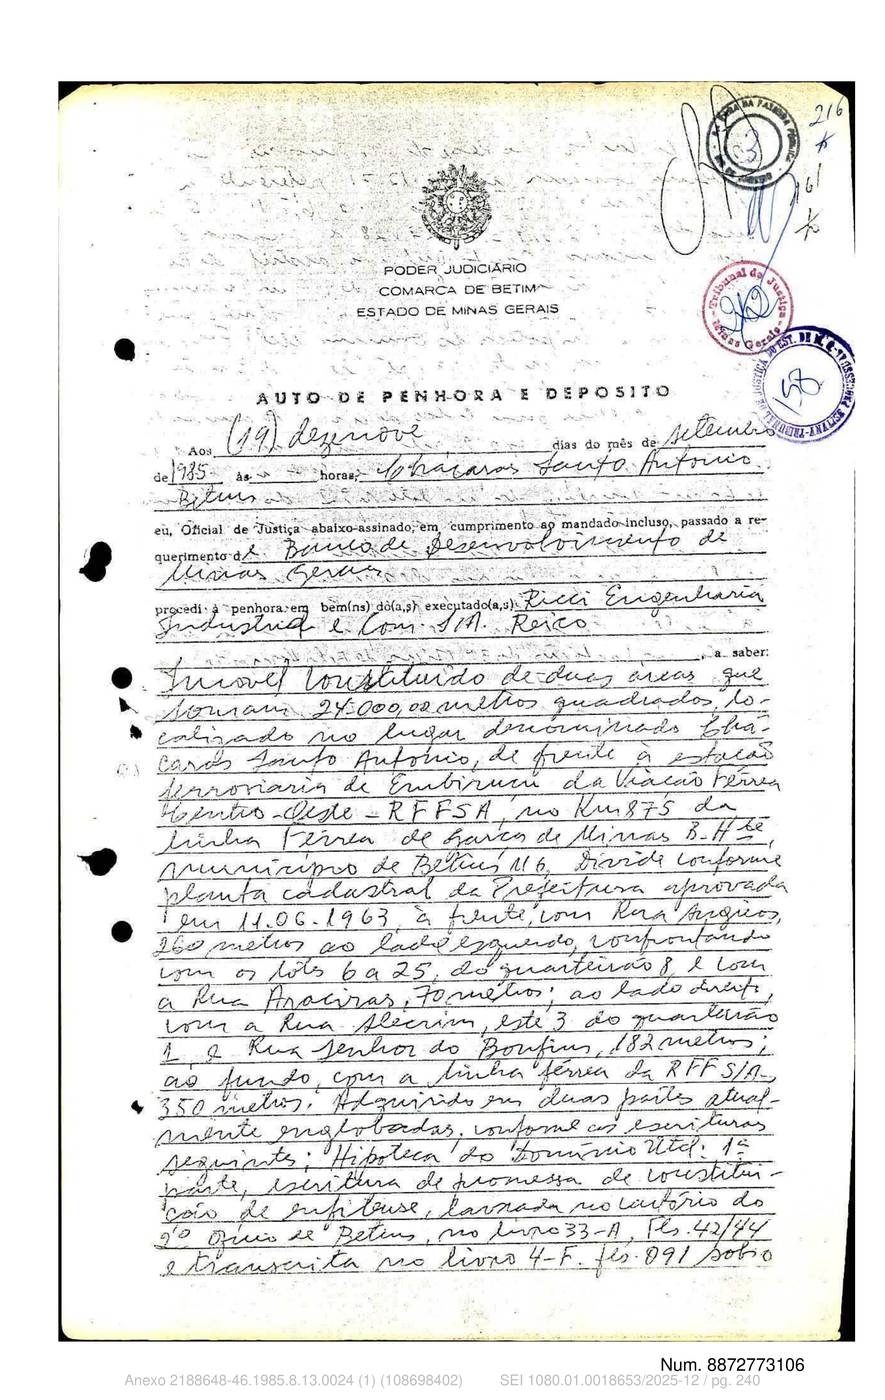 216
161
3
PODER JUDICIÁRIO
COMARCA DE BETIM
ESTADO DE MINAS GERAIS
Tribunal de Justiça
Minas Gerais
262
158
AUTO DE PENHORA E DEPOSITO
Aos (19) dezenove dias do mês de setembro
de 1985 às horas, Chácaras Santo Antonio
Betim
eu, Oficial de Justiça abaixo-assinado, em cumprimento ao mandado incluso, passado a re-
querimento de Banco de Desenvolvimento de
Minas Gerais
procedi à penhora em bem(ns) do(a,s) executado(a,s) Ricci Engenharia
Industrial e Com. S/A. Reico
, a saber:
Imovel constituido de duas áreas que
somam 24.000,00 metros quadrados, lo-
calizado no lugar denominado Chá-
caras Santo Antônio, de frente à estação
ferroviaria de Embiruçu da Viação Férrea
Centro-Oeste - RFFSA, no Km 875 da
linha Férrea de Garça de Minas B. Hte,
município de Betim MG, Divide conforme
planta cadastral da Prefeitura aprovada
em 11.06.1963, à frente, com Rua Angicos,
260 metros ao lado esquerdo, confrontando
com os lôtes 6 a 25, do quarteirão 8 e com
a Rua Aroeiras, 70 metros; ao lado direito,
com a Rua Alecrim, este 3 do quarteirão
1, e Rua Senhor do Bonfim, 182 metros;
ao fundo, com a linha férrea da RFFS/A-,
350 metros. Adquirido em duas partes atual-
mente englobadas, conforme as escrituras
seguintes; Hipoteca do Domínio Util: 1ª
parte, escritura de promessa de constitui-
ção de enfiteuse, lavrada no cartório do
2º ofício de Betim, no livro 33-A, Fls. 42/44
e transcrita no livro 4-F. fls. 091 sob o
Num. 8872773106
Anexo 2188648-46.1985.8.13.0024 (1) (108698402) SEI 1080.01.0018653/2025-12 / pg. 240